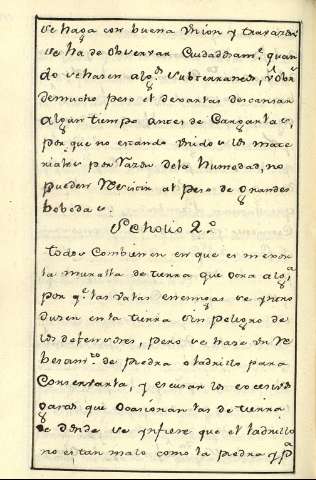 se haga con buena Union y travazon
se ha de observar Cuidadosam.te quan
do se hasen alg.s subterraneos, v obr
de mucho peso el dexarlas descansar
algun tiempo antes de Cargarlas,
por que no estando Unidos los mate
riales por razon de la humedad, no
pueden resistir al peso de grandes
bobedas.
Scholio 2.o
todos Combienen en que es mexor
la muralla de tierra que otra alg.a
por q.e las valas enemigas se yntro
dusen en la tierra sin peligro de
los defensores, pero se hase un re
besam.to de piedra o ladrillo para
Conservarla, y escusar los excesivos
gastos que Ocasionan las de tierra
de donde se ynfiere que el ladrillo
no es tan malo como la piedra y p.a